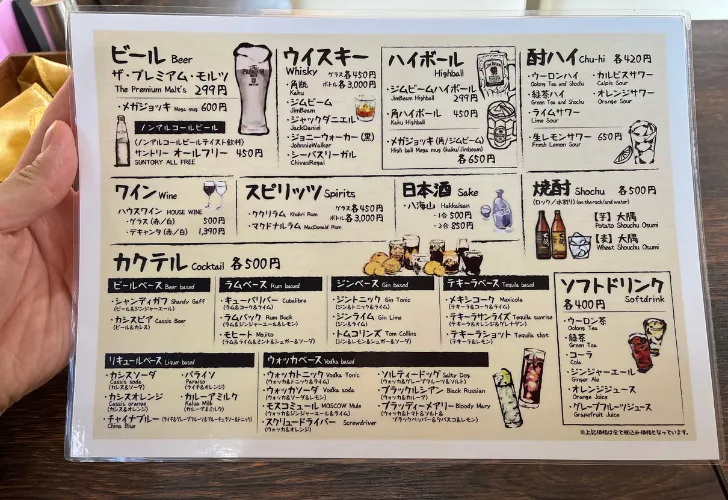 ビール Beer
ザ・プレミアム・モルツ
The Premium Malt's 299円
・メガジョッキ Mega mug 600円
ノンアルコールビール
(ノンアルコールビールテイスト飲料)
サントリー オールフリー 450円
SUNTORY ALL FREE
ウイスキー
Whisky グラス各450円
ボトル各3,000円
・角瓶
Kaku
・ジムビーム
JimBeam
・ジャックダニエル
JackDaniel
・ジョニーウォーカー(黒)
JohnnieWalker
・シーバスリーガル
ChivasRegal
ハイボール
Highball
ジムビームハイボール
JimBeam Highball 299円
角ハイボール 450円
Kaku Highball
メガジョッキ(角/ジムビーム)
High ball Mega mug (Kaku/Jimbeam)
各650円
酎ハイ Chu-hi 各420円
・ウーロンハイ
Oolong Tea and Shochu
・緑茶ハイ
Green Tea and Shochu
・ライムサワー
Lime Sour
・カルピスサワー
Calpis Sour
・オレンジサワー
Orange Sour
・生レモンサワー 650円
Fresh Lemon Sour
ワイン Wine
ハウスワイン HOUSE WINE
・グラス(赤/白) 500円
・デキャンタ(赤/白) 1,390円
スピリッツ Spirits
グラス各450円
ボトル各3,000円
・ククリラム Khukri Rum
・マクドナルラム MacDonald Rum
日本酒 Sake
・八海山 Hakkaisan
・1合 500円
・2合 850円
焼酎 Shochu 各500円
(ロック/水割り) (on the rock/and water)
【芋】大隅
Potato Shouchu Osumi
【麦】大隅
Wheat Shouchu Osumi
カクテル Cocktail 各500円
ビールベース Beer based
・シャンディガフ Shandy Gaff
(ビール&ジンジャーエール)
・カシスビア Cassis Beer
(ビール&カシス)
ラムベース Rum based
・キューバリバー Cubalibre
(ラム&コーク&ライム)
・ラムバック Rum Buck
(ラム&ジンジャーエール&レモン)
・モヒート Mojito
(ラム&ライム&ミント&シュガー&ソーダ)
ジンベース Gin based
・ジントニック Gin Tonic
(ジン&トニック&ライム)
・ジンライム Gin Lime
(ジン&ライム)
・トムコリンズ Tom Collins
(ジン&レモン&シュガー&ソーダ)
テキーラベース Tequila based
・メキシコーク Mexicola
(テキーラ&コーク&ライム)
・テキーラサンライズ Tequila sunrise
(テキーラ&オレンジ&グレナデン)
・テキーラショット Tequila shot
(テキーラ&ライム)
ソフトドリンク
各400円 Softdrink
・ウーロン茶
Oolong Tea
・緑茶
Green Tea
・コーラ
Cola
・ジンジャーエール
Ginger Ale
・オレンジジュース
Orange Juice
・グレープフルーツジュース
Grapefruit Juice
リキュールベース Liquor based
・カシスソーダ
Cassis soda
(カシス&ソーダ)
・カシスオレンジ
Cassis orange
(カシス&オレンジ)
・パライソ
Paraiso
(ライチ&オレンジ)
・カルーアミルク
Kalua Milk
(カルーア&ミルク)
・チャイナブルー (ライチ&グレープフルーツ&ブルーキュラソー&トニック)
China Blue
ウォッカベース Vodka based
・ウォッカトニック Vodka Tonic
(ウォッカ&トニック&ライム)
・ウォッカソーダ Vodka soda
(ウォッカ&ソーダ&レモン)
・モスコミュール MOSCOW Mule
(ウォッカ&ジンジャーエール&ライム)
・スクリュードライバー Screwdriver
(ウォッカ&オレンジ)
・ソルティードッグ Salty Dog
(ウォッカ&グレープフルーツ&ソルト)
・ブラックルシアン Black Russian
(ウォッカ&カルーア)
・ブラッディーメアリー Bloody Mary
(ウォッカ&トマト&ソルト&
ブラックペッパー&タバスコ&レモン)
※上記価格は全て税込み価格となっています。